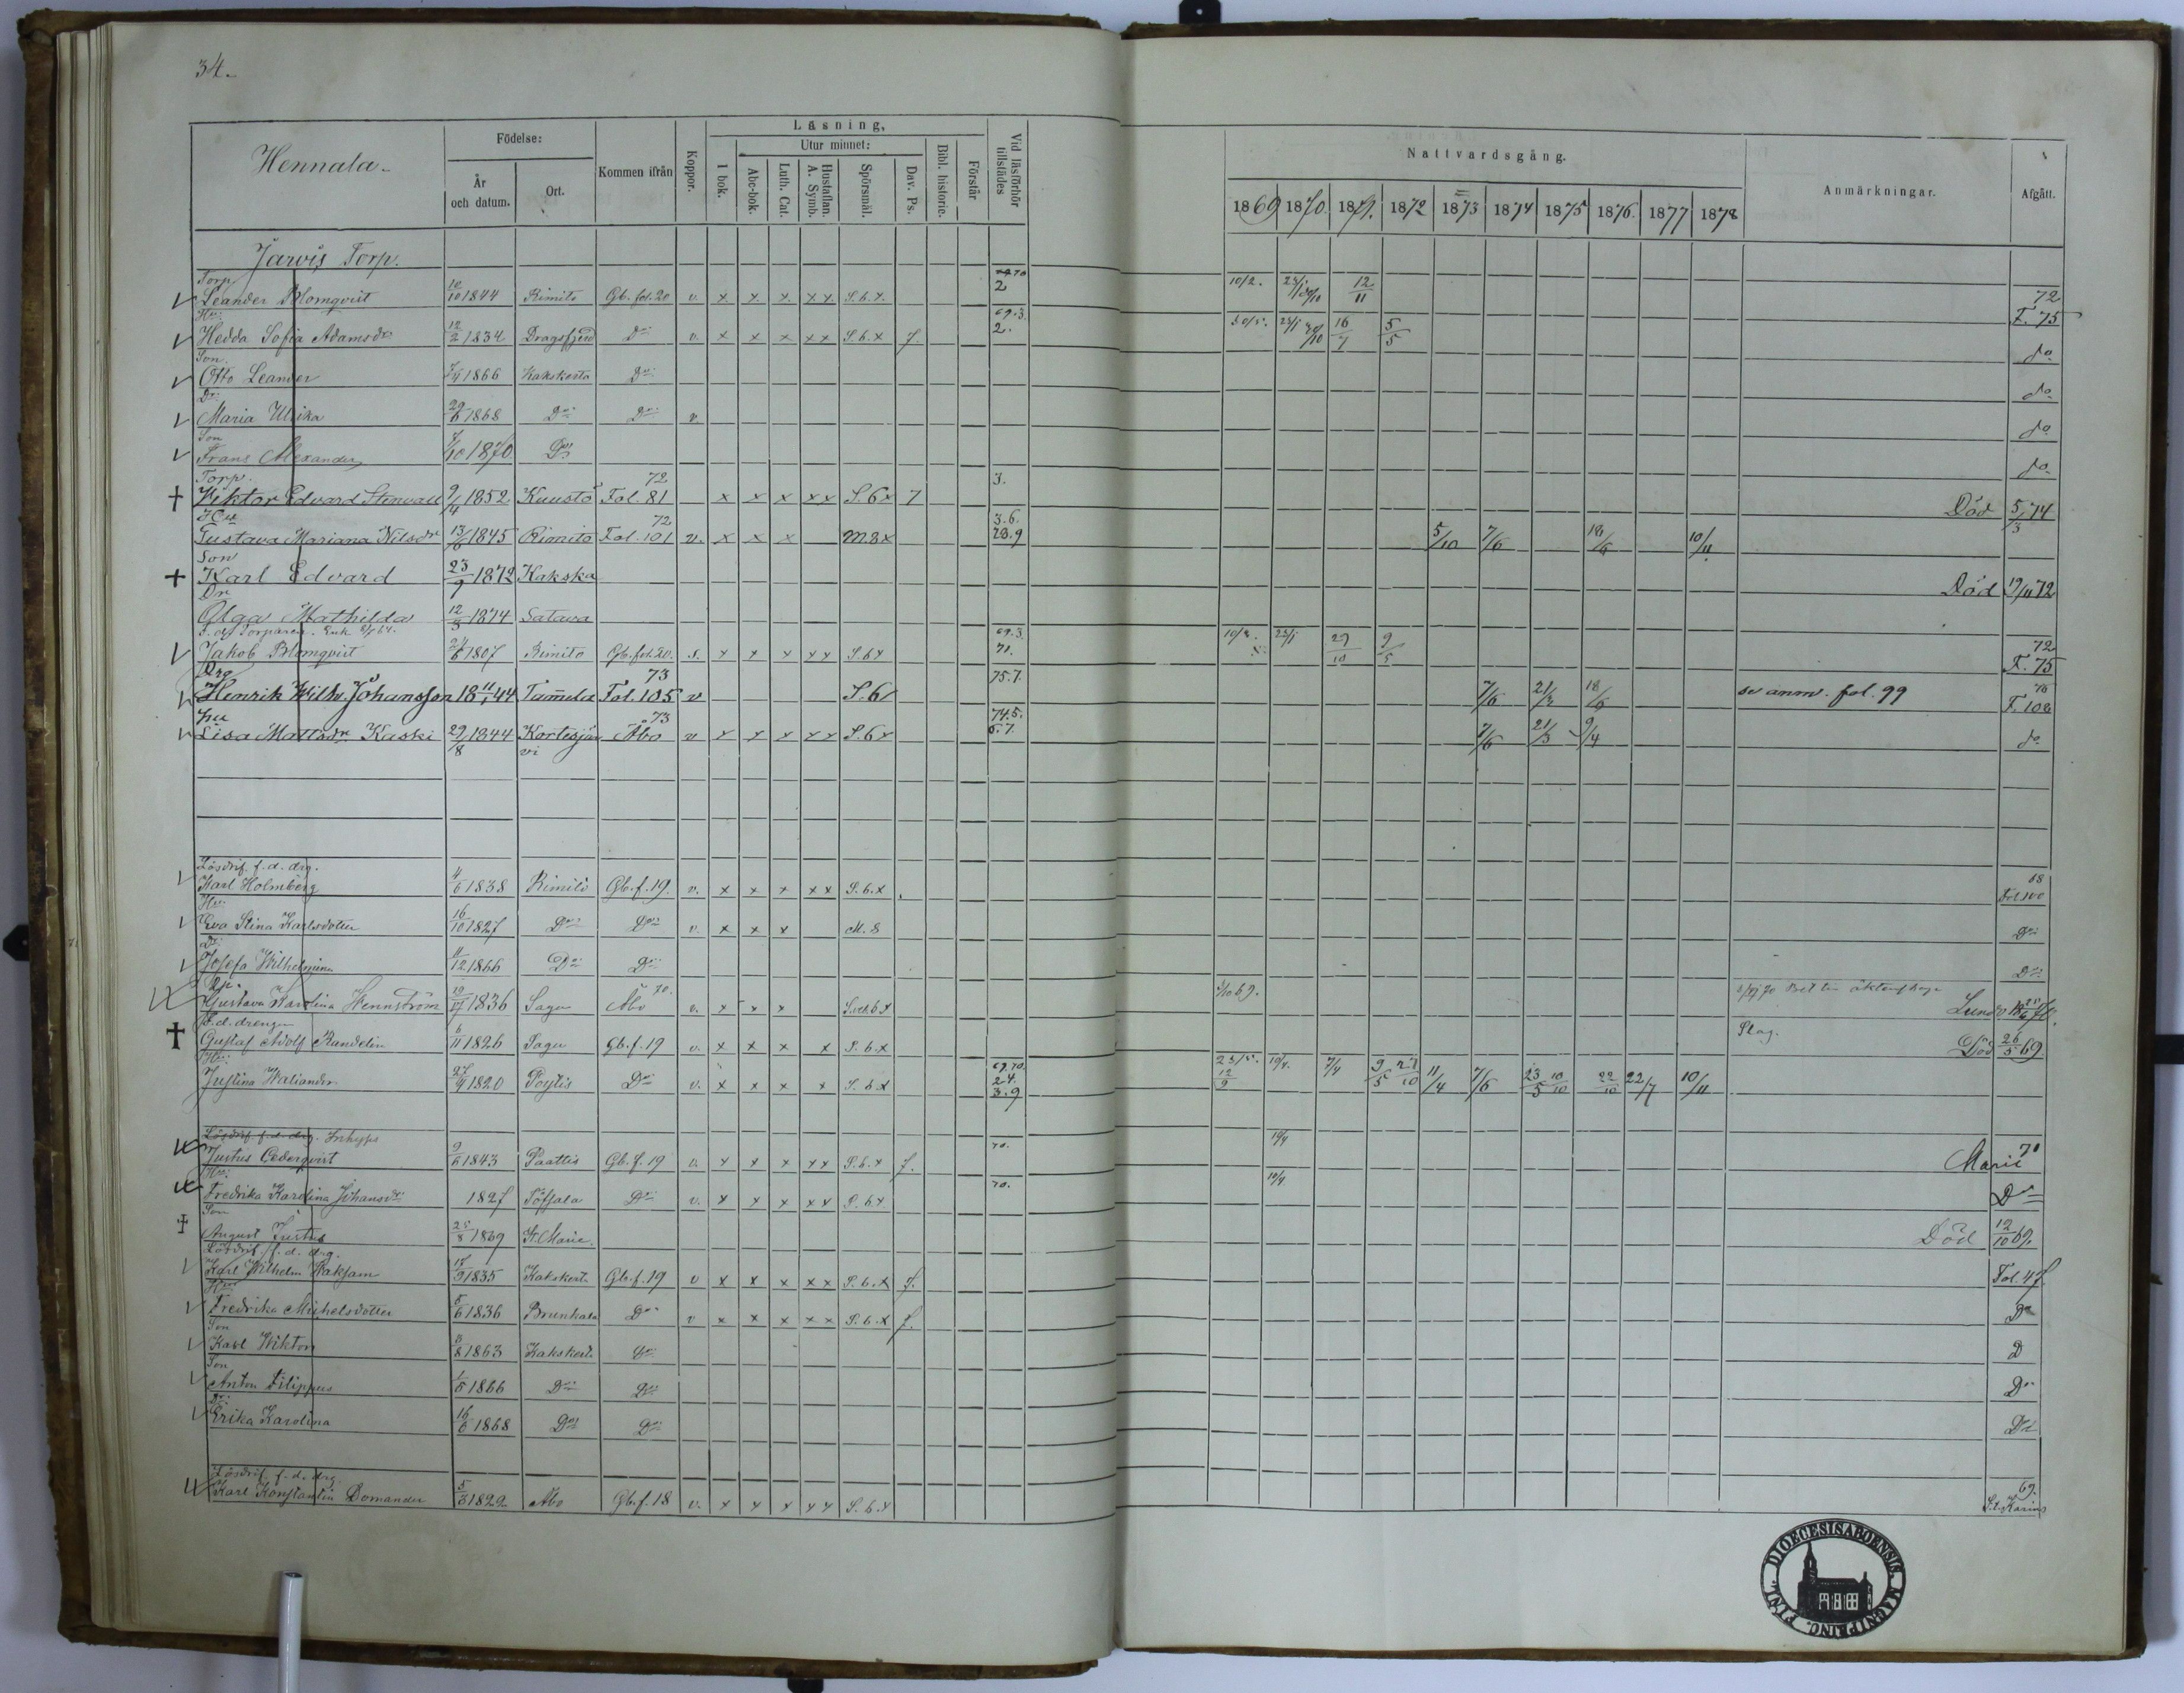 34.
Hennala.
Födelse:
År och datum.
Ort.
Kommen ifrån
Koppor.
Läsning,
I bok.
Utur minnet:
Abc-bok.
Luth. Cat.
Hustaflan. A. Symb.
Spörsmål.
Dav. Ps.
Bibl. historie.
Förstår
Vid läsförhör tillstädes
Nattvardsgång.
1869 1870 1871. 1872 1873 1874 1875 1876. 1877 1878
Anmärkningar.
Afgått.
Jarvis Torp.
Torp.
Leander Blomqvist 10/10 1844 Rimito Gb. fol. 20 v. x x x x x S. 6. x. 2 10/2. 12/11 72 F. 75
Hu:
Hedda Sofia Adamsdr 12/2 1834 Dragsfjerd Do v. x x x x x S. 6. x f. 69.3. 2. 30/5. 16/7 5/5 do
Son.
Otto Leander 1866 Kakskerta Do do
Dr:
Maria Ulrika 29/6 1868 Do Do v. do
Son
Frans Alexander 7/10 1870 Do do
Torp.
Wiktor Edvard Stenvall 9/4 1852 Kuustö 72 Fol. 81 x x x x x S. 6 x 7 3. Död 5/3 74
Hu
Gustava Mariana Nilsdr 13/6 1845 Rimito 72 Fol. 101 v. x x x M. 8 x 3.6. 28.9 5/10 7/6 18/6 10/11
Son
Karl Edvard 23/9 1872 Kakska Död 19/11 72
Dr
Olga Mathilda 12/3 1874 Satava
F. d. Torparen. Enk.
Jakob Blomqvist 1807 Rimito Gb. fol. 20. x x x x x S. 6 x 69.3. 71. 29/10 9/5 72 F. 75
Drg
Henrik Wilh. Johansson 18 11/1 44 Tammela 73 Fol. 105 v S. 6 75.7. 7/6 21/3 18/6 se anm. fol. 99 F. 102
Hu
Lisa Mattsdr Kaski 29/8 1844 Kortesjärvi 73 Åbo v x x x x x S. 6 x 74.5. 6.7. 7/6 21/3 9/4 do
Lösdrif. f. d. drg.
Karl Holmberg 4/6 1838 Rimito Gb. f. 19. v. x x x x x S. 6. x Fol. 100
Hu:
Eva Stina Karlsdotter 16/10 1827 Do Do v. x x x M. 8 Do
Dr:
Josefa Wilhelmina 11/12 1866 Do Do Do
Gustava Karolina Hennström 1836 Sagu Åbo 70. v. x x x 3/10 69. Lundo
F. d. drengen
Gustaf Adolf Randelin 6/11 1826 Sagu Gb. f. 19 v. x x x x S. 6. x Slag. Död 26/5 69
Hu:
Justina Waliander 27/9 1820 Pöytis Do v. x x x x S. 6 x 69.70. 24. 3.9 23/5. 12/9 10/4. 7/4 9/5 27/10 11/4 7/6 23/5 10/10 22/10 22/7 10/11
Lösdrif. f. d. drg. Inhyses
Justus Cederqvist 9/6 1843 Paattis Gb. f. 19 v. x x x x x S. 6. x f. 70. 10/4 Marie 70
Hu:
Fredrika Karolina Johansdr 1827 Töfsala Do v. x x x x x S. 6 x 70. 10/4 Do
Son
August Justus 25/8 1869 St. Marie. Död 12/10 69.
Lösdrif. f. d. drg.
Karl Wilhelm Waksam 1835 Kakskerta Gb. f. 19 v x x x x x S. 6. x f. Fol. 47.
Hu:
Fredrika Michelsdotter 5/6 1836 Brunkala Do v x x x x x S. 6. x f. Do
Son
Karl Wiktor 3/8 1863 Kakskerta Do D
Son
Anton Filippus 1/5 1866 Do Do Do
Dr:
Erika Karolina 16/6 1868 Do Do Do
Lösdrif. f. d. drg.
Karl Konstantin Domander 5/3 1822 Åbo Gb. f. 18 v. x x x x x S. 6. x 69. S:t Karins
DIOECESIS ABOENSIS. MAGNI PRINC. FINL.